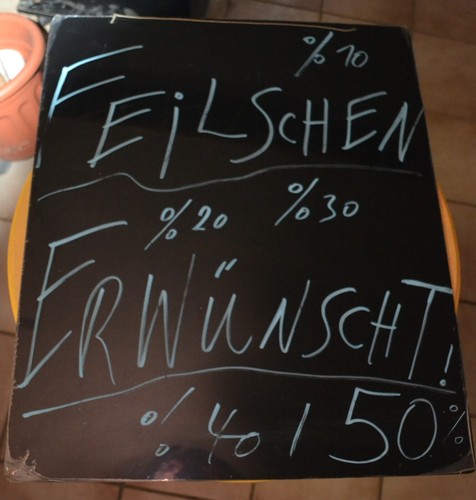 %10
FEiLSCHEN
%20 %30
ERWÜNSCHT!
% 40 / 50%